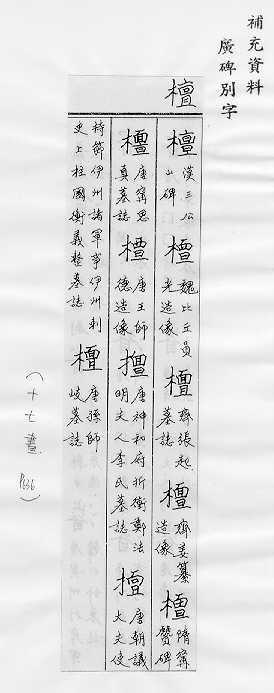 補充資料
廣碑別字
檀
檀 漢三公山碑 檀 魏比丘員光造像 檀 齊張起墓誌 檀 齊姜纂造像 檀 隋甯贙碑
檀 唐甯思真墓誌 檀 唐王師德造像 檀 唐神和府折衝鄭法明夫人李氏墓誌 檀 唐朝議大夫使
持節伊州諸軍事伊州刺史上柱國衡義整墓誌 檀 唐孫師岐墓誌
(十七畫 P636)